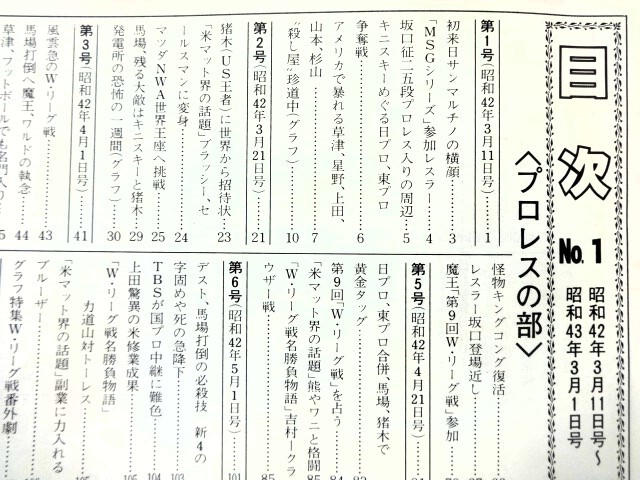 目次 No.1 昭和42年3月11日号〜
昭和43年3月1日号
〈プロレスの部〉
第1号(昭和42年3月11日号)……1
初来日サンマルチノの横顔……3
「MSGシリーズ」参加レスラー……4
坂口征二五段プロレス入りの周辺……5
キニスキーめぐる日プロ、東プロ
争奪戦……6
アメリカで暴れる草津、星野、上田、
山本、杉山……7
"殺し屋"珍道中(グラフ)……10
第2号(昭和42年3月21日号)……21
猪木(US王者)に世界から招待状……23
「米マット界の話題」ブラッシー、セ
ールスマンに変身……24
マツダNWA世界王座へ挑戦……25
馬場、残る大敵はキニスキーと猪木……29
発電所の恐怖の一週間(グラフ)……30
第3号(昭和42年4月1日号)……41
風雲急のW・リーグ戦……43
馬場打倒へ魔王、ワルドの執念……44
草津、フットボールでも名門入り
怪物キングコング復活……
レスラー坂口登場近し……
魔王「第9回W・リーグ戦」参加……
第5号(昭和42年4月21日号)……
日プロ、東プロ合併、馬場、猪木で
黄金タッグ……
第9回「W・リーグ戦」を占う……84
「米マット界の話題」熊やワニと格闘……85
「W・リーグ戦名勝負物語」吉村ークラ
ウザー戦……85
第6号(昭和42年5月1日号)……101
デスト、馬場打倒の必殺技 新4の
字固めや死の急降下……103
TBSが国プロ中継に難色……104
上田驚異の米修業成果……105
「W・リーグ戦名勝負物語」
力道山対トーレス……105
「米マット界の話題」副業に力入れる
ブルーザー……
グラフ特集W・リーグ戦番外劇